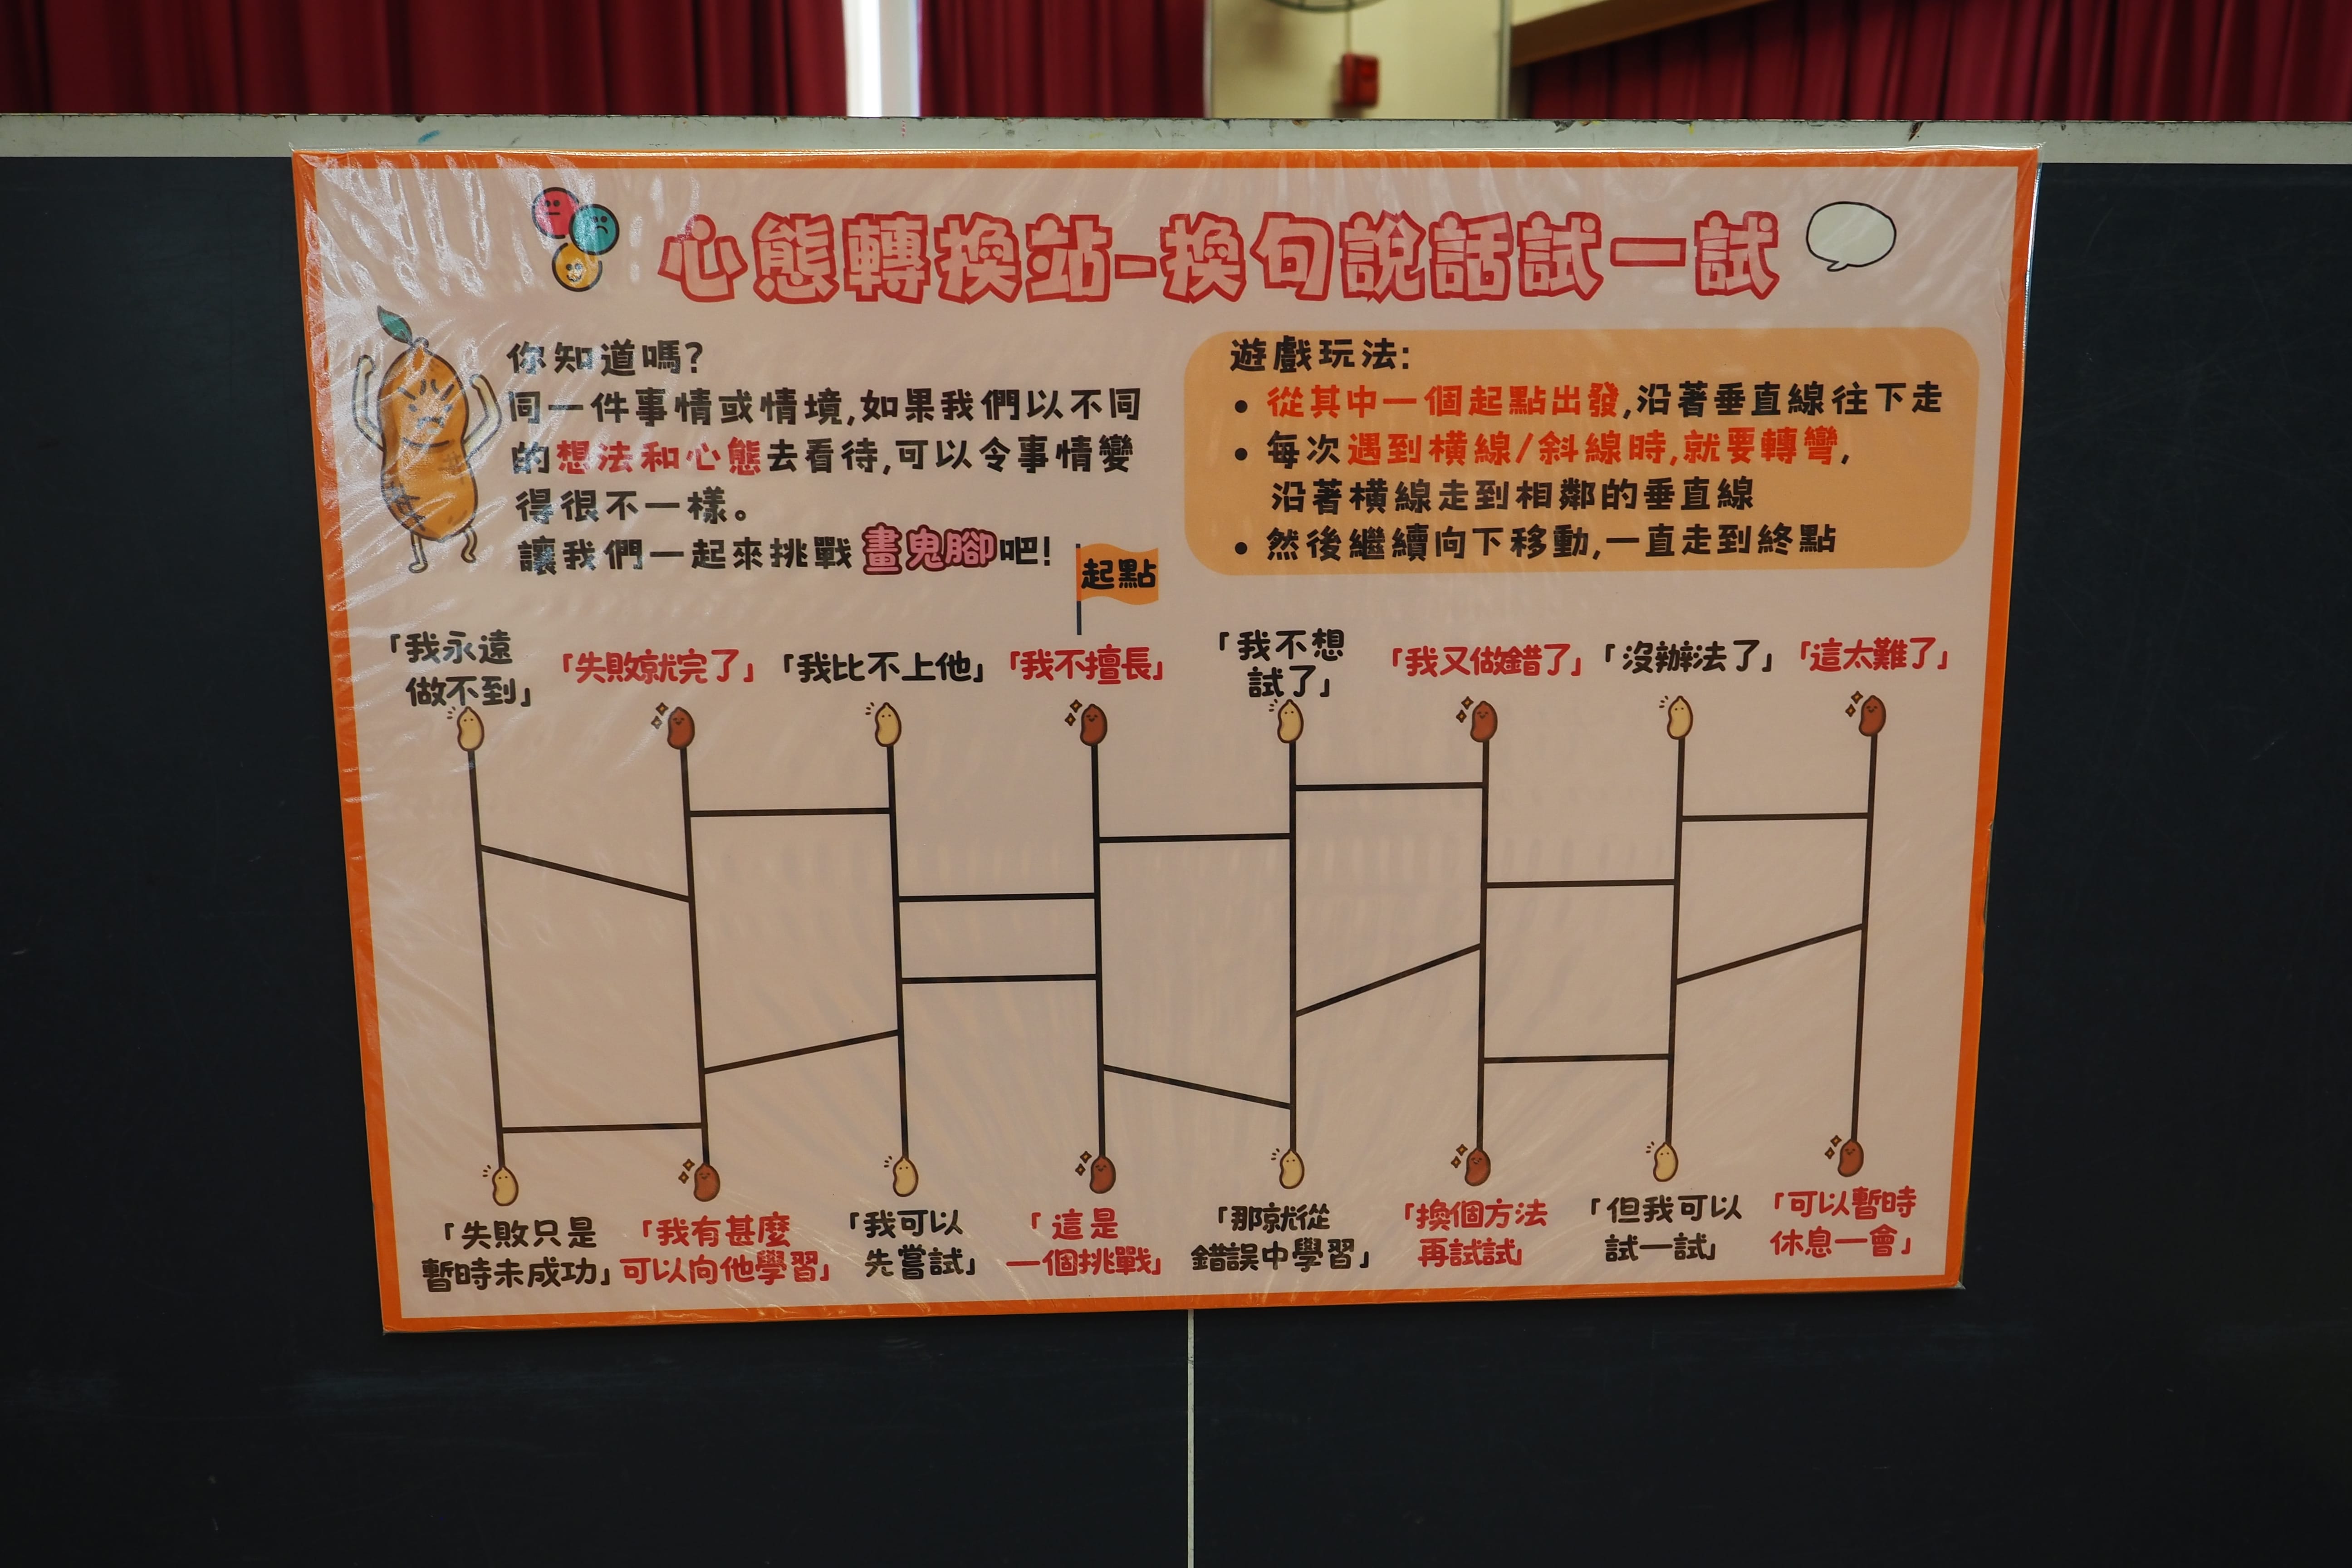 心態轉換站-換句說話試一試
你知道嗎?
同一件事情或情境,如果我們以不同
的想法和心態去看待,可以令事情變
得很不一樣。
讓我們一起來挑戰畫鬼腳吧!
遊戲玩法:
• 從其中一個起點出發,沿著垂直線往下走
• 每次遇到橫線/斜線時,就要轉彎,
沿著橫線走到相鄰的垂直線
• 然後繼續向下移動,一直走到終點
起點
「我永遠
做不到」
「失敗就完了」
「我比不上他」
「我不擅長」
「我不想
試了」
「我又做錯了」
「沒辦法了」
「這太難了」
「失敗只是
暫時未成功」
「我有甚麼
可以向他學習」
「我可以
先嘗試」
「這是
一個挑戰」
「那就從
錯誤中學習」
「換個方法
再試試」
「但我可以
試一試」
「可以暫時
休息一會」